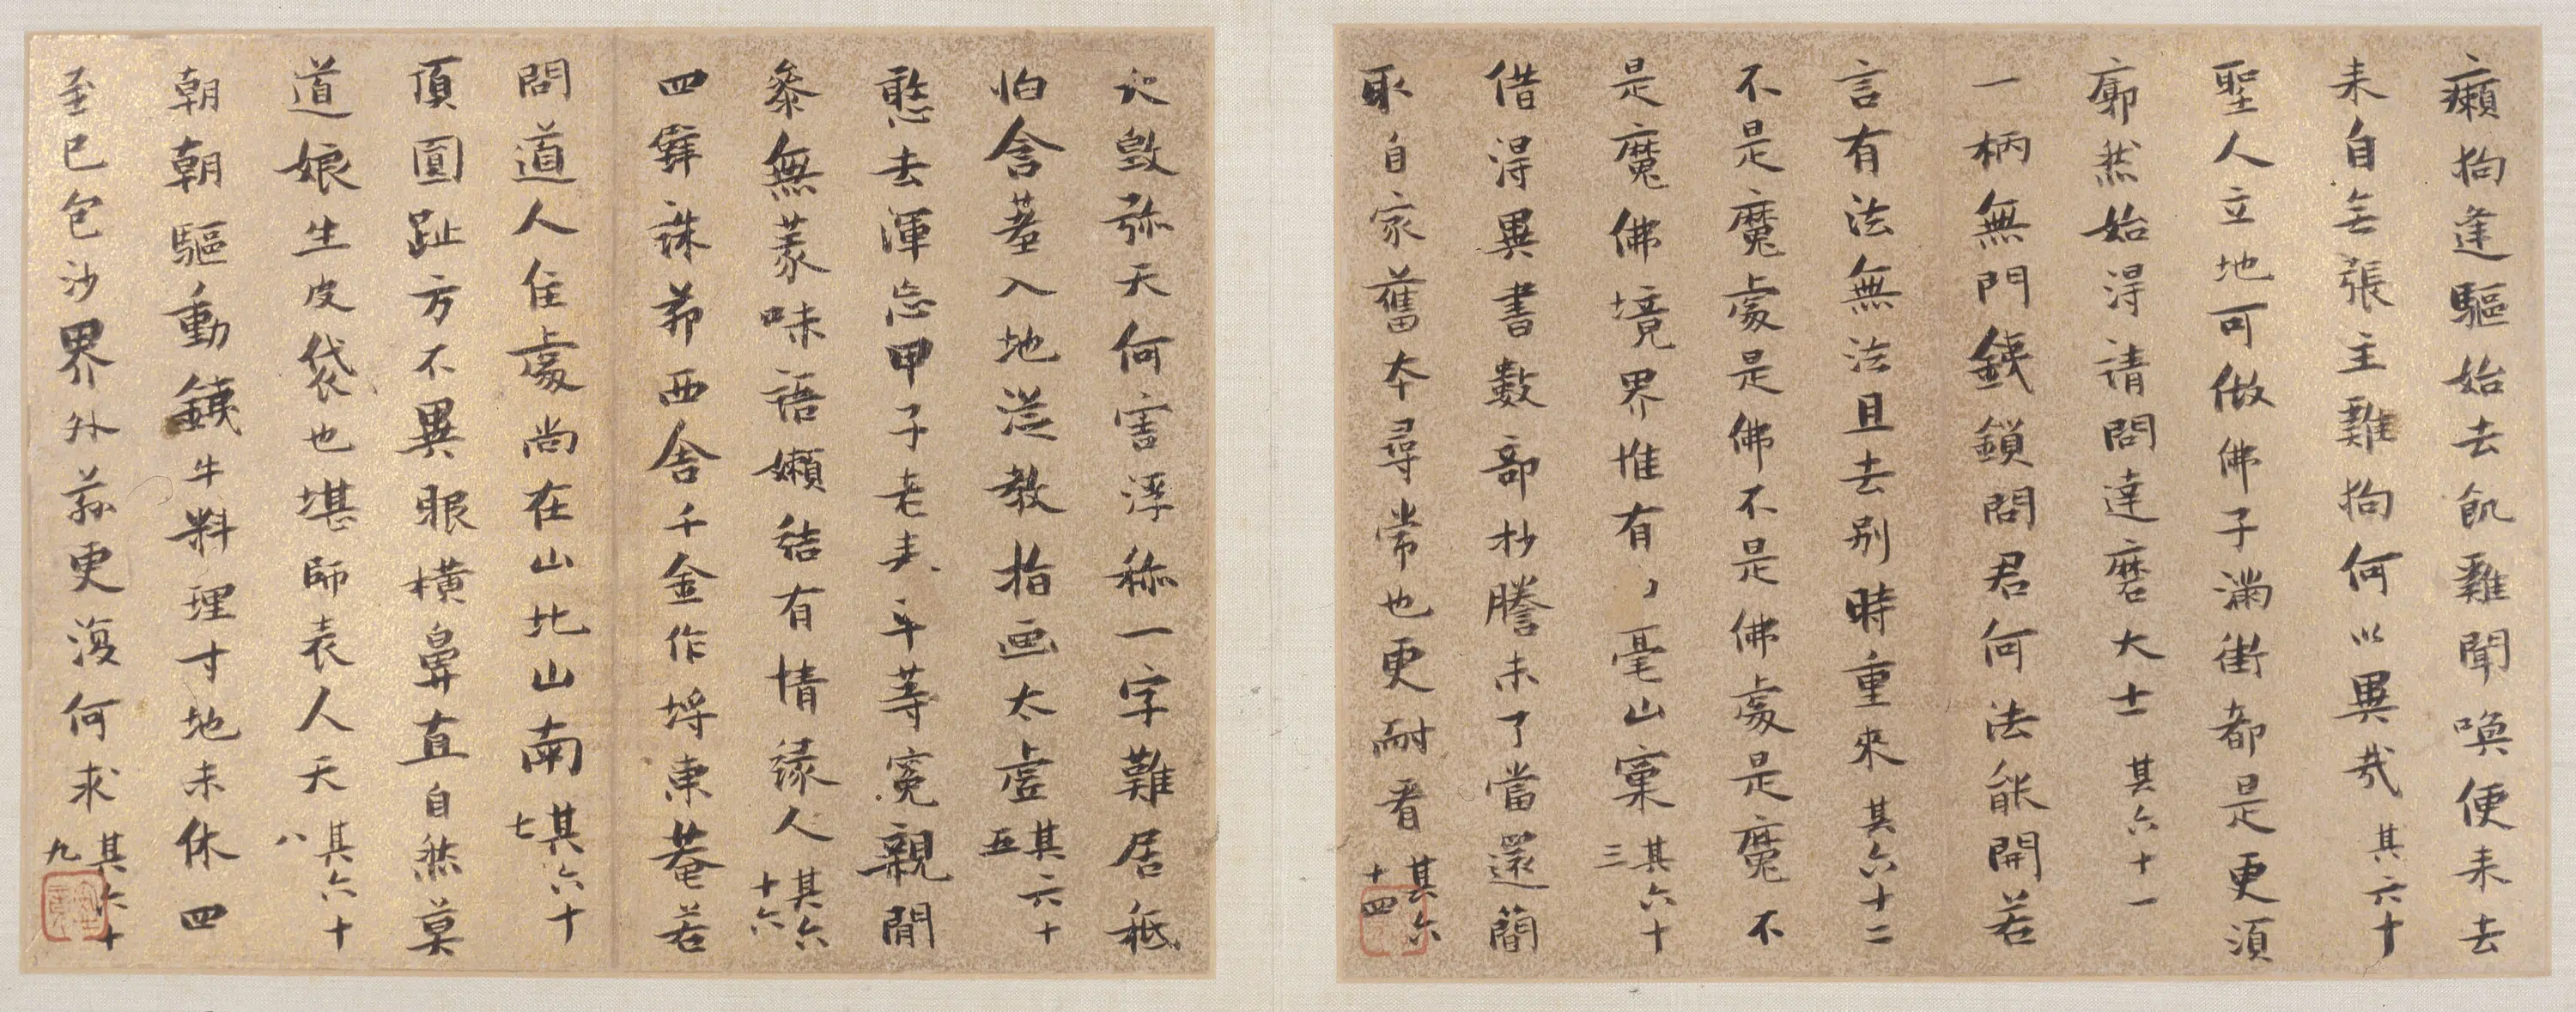 癩狗逢驅始去飢雞聞喚便來去
來自無張主雞狗何以異哉其六十
聖人立地可做佛子滿街都是更須
廓然始得請問達磨大士其六十一
一柄無門鐵鎖問君何法能開若
言有法無法且去別時重來其六十二
不是魔處是佛不是佛處是魔不
是魔佛境界惟有毫山窠其六十三
借得異書數部抄謄未了當還簡
取自家舊本尋常也更耐看其六十四
毀弥天何害浮稱一字難居秪
怕含羞入地從教指画太虛其六十五
憨去渾忘甲子老來平等冤親閒
參無義味語嬾結有情緣人其六十六
四壁誅茆西舍千金作埒東菴若
問道人住處尚在山北山南其六十七
頂圓趾方不異眼橫鼻直自然莫
道娘生皮袋也堪師表人天其六十八
朝朝驅動鐵牛料理寸地未休四
至已包沙界外更復何求其六十九